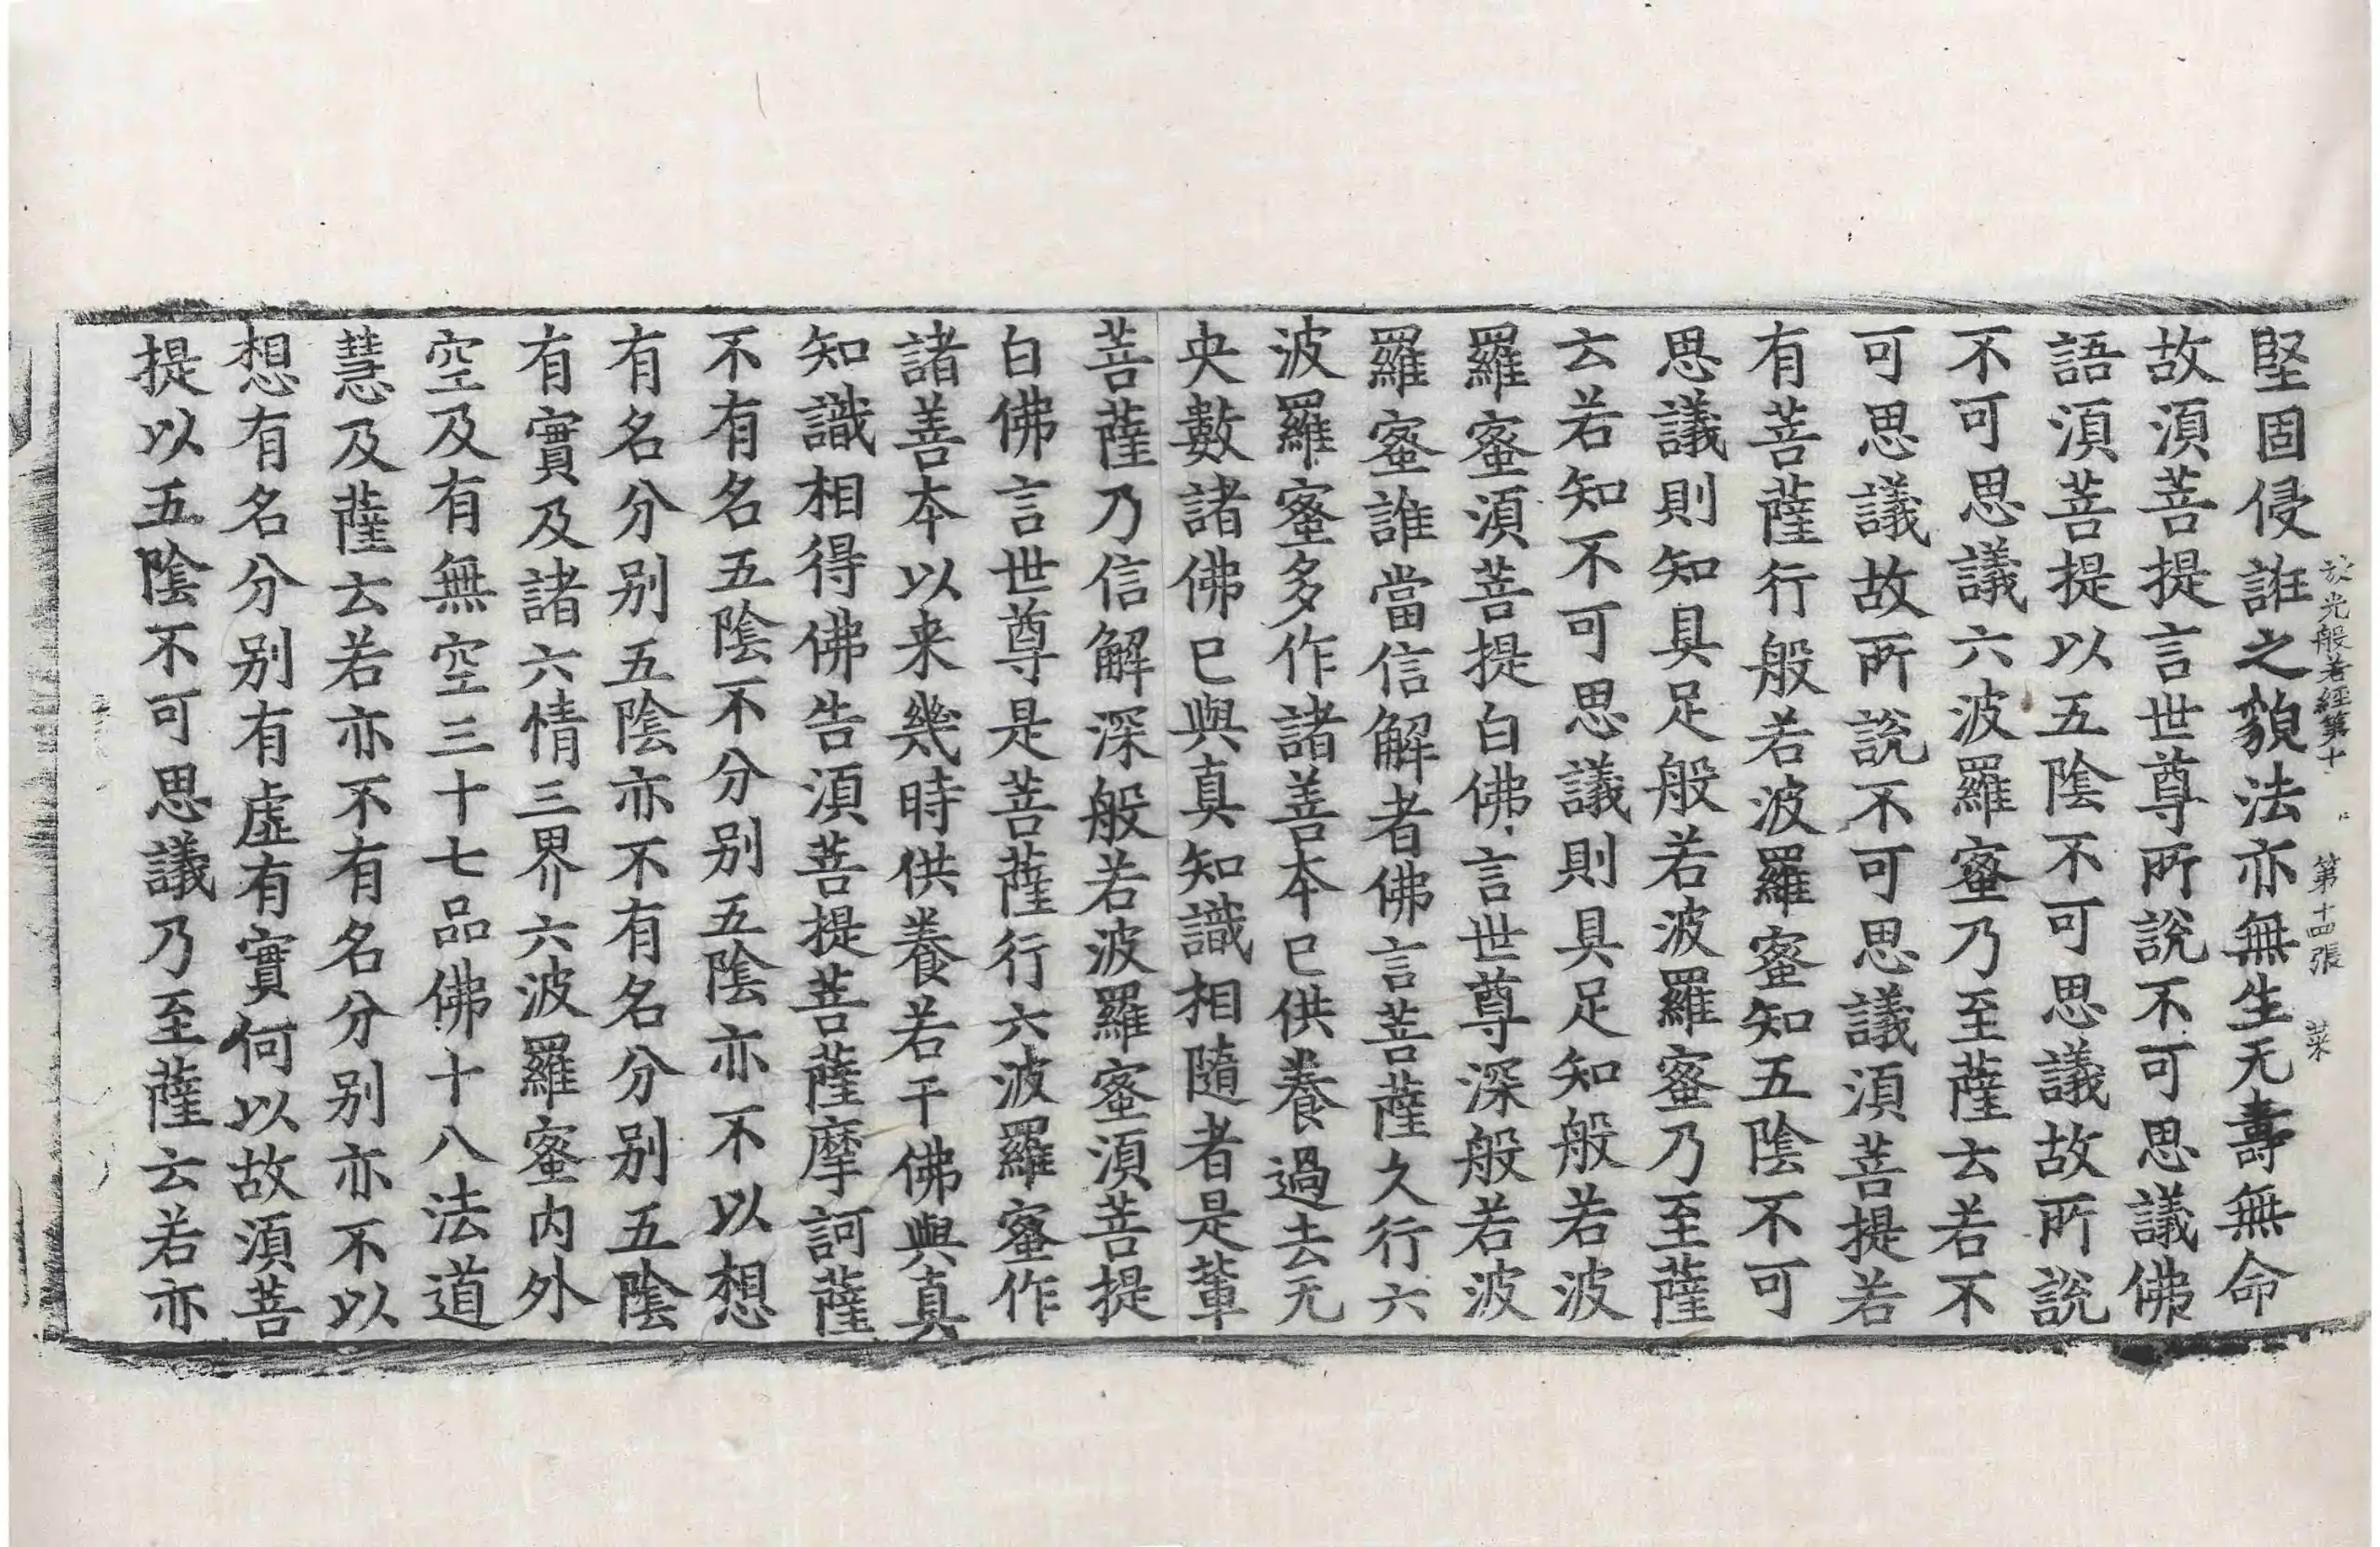 放光般若經第十 第十四張 菜
堅固侵誑之貌法亦無生无壽無命
故須菩提言世尊所說不可思議佛
語須菩提以五陰不可思議故所說
不可思議六波羅蜜乃至薩云若不
可思議故所說不可思議須菩提若
有菩薩行般若波羅蜜知五陰不可
思議則知具足般若波羅蜜乃至薩
云若知不可思議則具足知般若波
羅蜜須菩提白佛言世尊深般若波
羅蜜誰當信解者佛言菩薩久行六
波羅蜜多作諸善本已供養過去无
央數諸佛已與真知識相隨者是輩
菩薩乃信解深般若波羅蜜須菩提
白佛言世尊是菩薩行六波羅蜜作
諸善本以来幾時供養若干佛與真
知識相得佛告須菩提菩薩摩訶薩
不有名五陰不分别五陰亦不以想
有名分别五陰亦不有名分别五陰
有實及諸六情三界六波羅蜜内外
空及有無空三十七品佛十八法道
慧及薩云若亦不有名分别亦不以
想有名分别有虛有實何以故須菩
提以五陰不可思議乃至薩云若亦